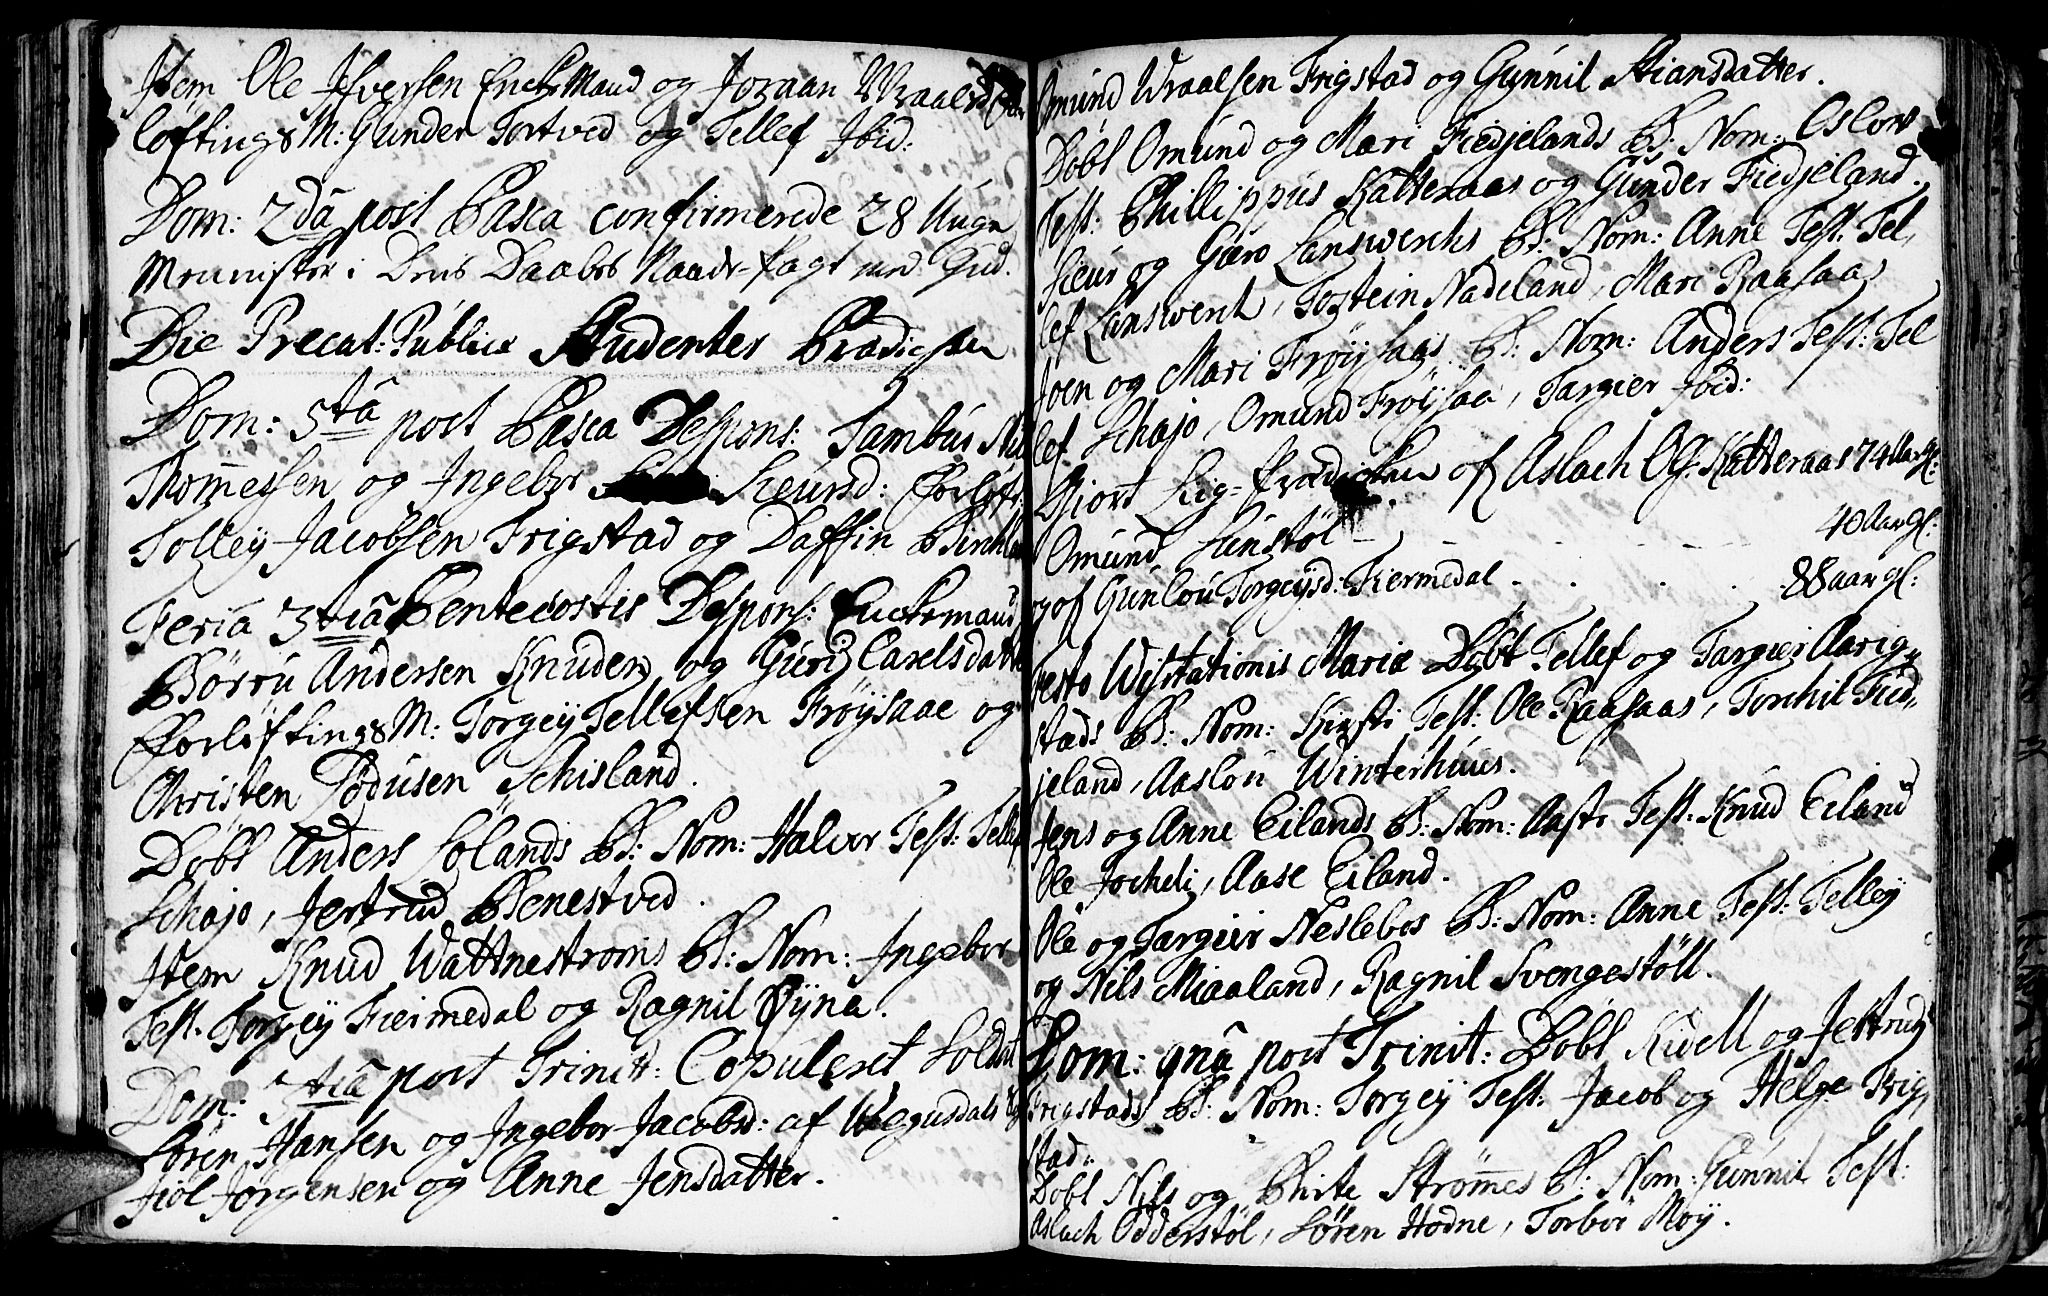 Item Ole Ifversen EnckeMand og Joraan Wraalsdatter
løftings M: Gunder Tortved og Tellef Ibid:
Dom: 2dâ post Pasca confirmerede 28 Unge
Mennisker i Deris Daabes Naade-Pagt med Gud.
Die Precat: Publice Studenter Prædicken
Dom: 5tâ post Pasca Despons: Tambur
Thommessen og Ingebor Sieursd: Forløft:
Tolley Jacobsen Frigstad og Daffin
Feria 3tiâ Pentecostis Despons: Enckemand
Børru Andersen Knuden og Guri Carelsdatter
Forløftings M: Torgey Tellefsen Frøysaae og
Christen Pødusen Schisland.
Døbt Anders Lølands B: Nom: Halvor Test: Tellef
Schajo, Jertrud Benestved.
Item Knud Wattnestroms B: Nom: Ingebor
Test. Torgey Fiermedal og Ragnil Øyna.
Dom: 3tiâ post Trinit: Copuleret Soldat
Søren Hansen og Ingebor Jacobsd: af Wegusdals
Jørgensen og Anne Jensdatter.
Omund Wraalsen Frigstad og Gunnil Stiansdatter.
Døbt Omund og Mari Fiedjelands B: Nom: Oslow
Test: Phillippus Katteraas og Gunder Fiedjeland.
Sieur og Guro Lanswerks B: Nom: Anne Test: Tel,
lef Lanswerk, Tostein Nadeland, Mari Raasaas
Joen og Mari Frøysaas B: Nom: Anders Test: Tel
lef Schajo, Omund Frøysaa, Targier Ibid:
Giort Lig-Prædicken of Aslach Ols: Katteraas 74 Aar gl:
Omund Lunstøl - - - - 40 Aar gl:
og of Gunlou Torgeysd: Fiermedal . . . . 88 aar gl:
Festo Visitationis Mariæ Døbt Tellef og Targier Aarig,,
stads B: Nom: Kirsti Test: Ole Raasaas, Torchil Fied,,
jeland, Aaslou Winterhuus.
Jens og Anne Eilands B: Nom: Aaste Test: Knud Eiland
Ole Jocheli, Aase Eiland.
Ole og Targier Neslebos B: Nom: Anne Test: Telley
og Nils Miaaland, Ragnil Svengestöll.
Dom: 9nâ post Trinit: Døbt Kidell og Jertrud
Frigstads B: Nom: Torgey Test: Jacob og Helge Frig,
stad.
Døbt Nils og Birte Strømmes B: Nom: Gunnil Test:
Aslach Odderstøl, Søren Hodne, Torbor Moy.